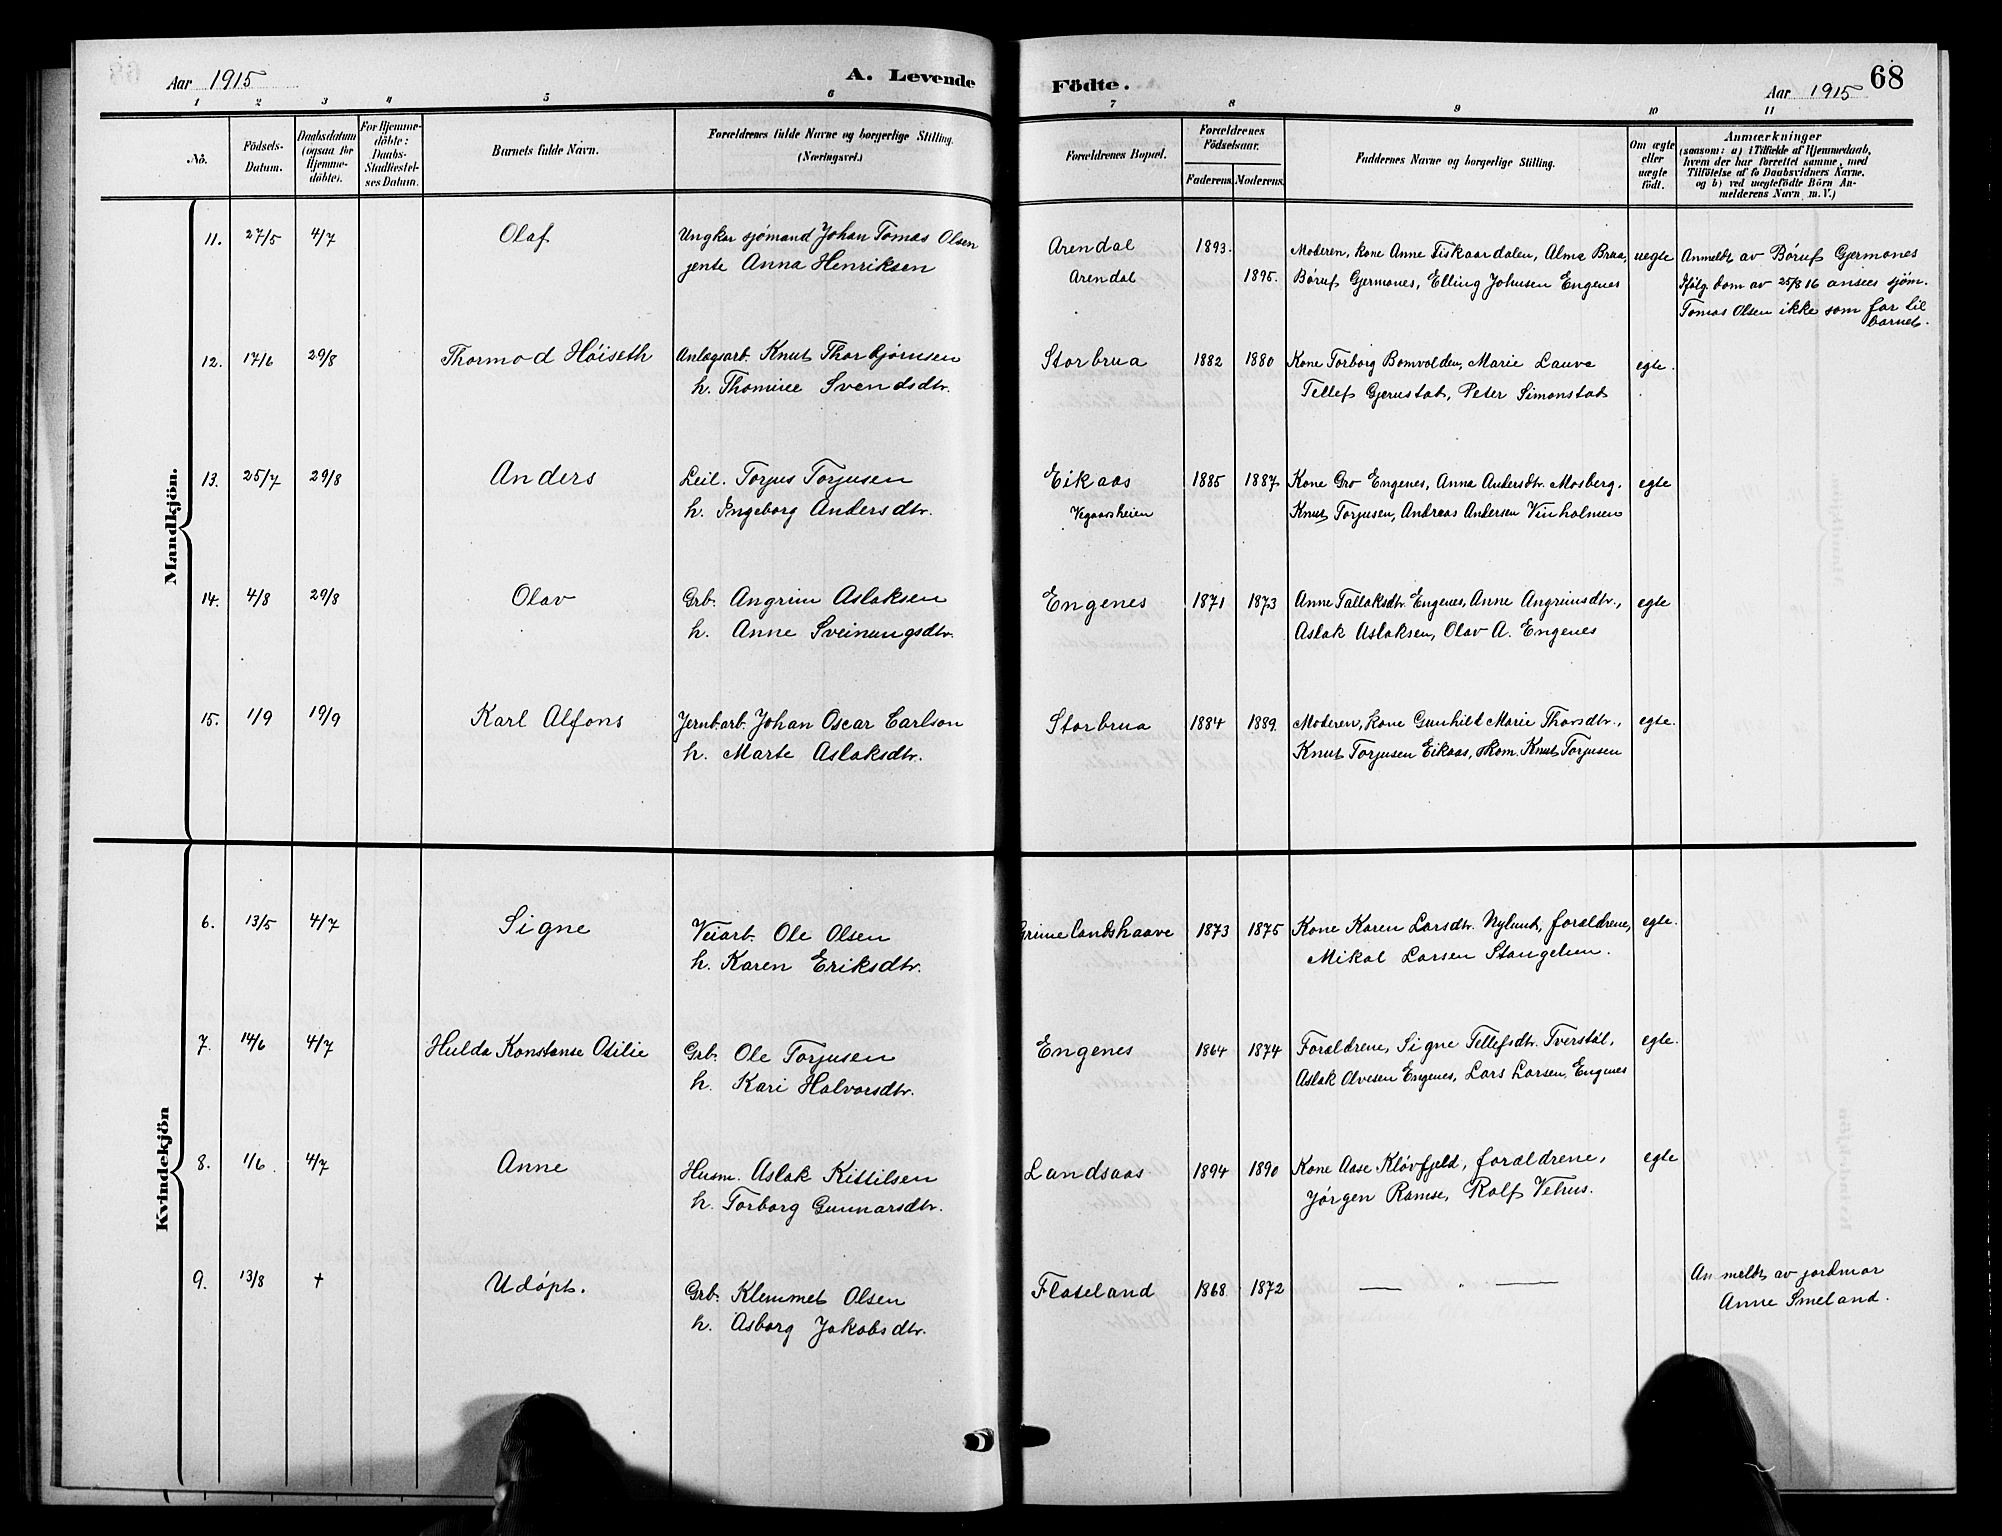 Aar 1915
A. Levende Födte.
Aar 1915
68
1 2 3 4 5 6 7 8 9 10 11
No.
Födsels-Datum.
Daabsdatum (ogsaa for Hjemme-döbte).
For Hjemme-döbte: Daabs-Stadfæstel-ses Datum.
Barnets fulde Navn.
Forældrenes fulde Navne og borgerlige Stilling. (Næringsvei.)
Forældrenes Bopæl.
Forældrenes Födselsaar.
Faderens. Moderens.
Faddernes Navne og borgerlige Stilling.
Om ægte eller uægte født.
Anmærkninger
(saasom: a) i Tilfælde af Hjemmedaab, hvem der har forrettet samme, med Tilföielse af to Daabsvidners Navne, og b) ved uægtefödte Börn Anmelderens Navn m. V.)
Mandkjön.
11. 27/5 4/7 Olaf Ungkar sjömand Johan Tomas Olsen Arendal 1893. Moderen, kone Anne Fiskaardalen, Alma Brua, uegte Anmeldt av Børuf Gjermones
jente Anna Henriksen Arendal 1895. Børuf Gjermones, Elling Johnsen Engenes Ifølg. dom av 25/8 16 ansees sjøm.
Tomas Olsen ikke som far til
barnet.
12. 17/6 29/8 Thormod Höiseth Anlægsarb. Knut Thorbjørnsen Storbrua 1882 1880 Kone Torborg Bomvolden, Marie Lauve egte.
h. Thomine Svendsdtr. Tellef Gjerustad, Peter Simonstad
13. 25/7 29/8 Anders Leil. Torjus Torjusen Eikaas 1885 1887 Kone Gro Engenes, Anna Andersdtr. Mosberg, egte
h. Ingeborg Andersdtr. Vegaarsheien Knut Torjusen, Andreas Andersen Vinholmen
14. 4/8 29/8 Olav Grb. Angrim Aslaksen Engenes 1871 1873 Anne Tallaksdtr. Engenes, Anne Angrimsdtr., egte
h. Anne Sveinungsdtr. Aslak Aslaksen, Olav A. Engenes
15. 1/9 19/9 Karl Alfons Jernb.arb. Johan Oscar Carlson Storbrua 1884 1889. Moderen, kone Gunhild Marie Thorsdtr., egte.
h. Marte Aslaksdtr. Knut Torjusen Eikaas, skom. Knut Torjusen
Kvindekjön
6. 13/5 4/7 Signe Veiarb. Ole Olsen Grimelandshaave 1873 1875 Kone Karen Larsdtr. Nylund, forældrene, egte.
h. Karen Eriksdtr. Mikal Larsen Stangelien.
7. 14/6 4/7 Hulda Konstanse Otilie Grb. Ole Torjusen Engenes 1864 1874 Forældrene, Signe Tellefsdtr. Tverstøl, egte.
h. Kari Halvorsdtr. Aslak Olvesen Engenes, Lars Larsen, Engenes
8. 1/6 4/7 Anne Husm. Aslak Kittilsen Landsaas 1894 1890 Kone Aase Kløvfjeld, forældrene, egte
h. Torborg Gunnarsdtr. Jørgen Ramse, Rolf Vehus.
9. 13/8 † Udøpt. Grb. Klemmet Olsen Flateland 1868 1872 — " — Anmeldt av jordmor
h. Asborg Jakobsdtr. Anne Smeland.